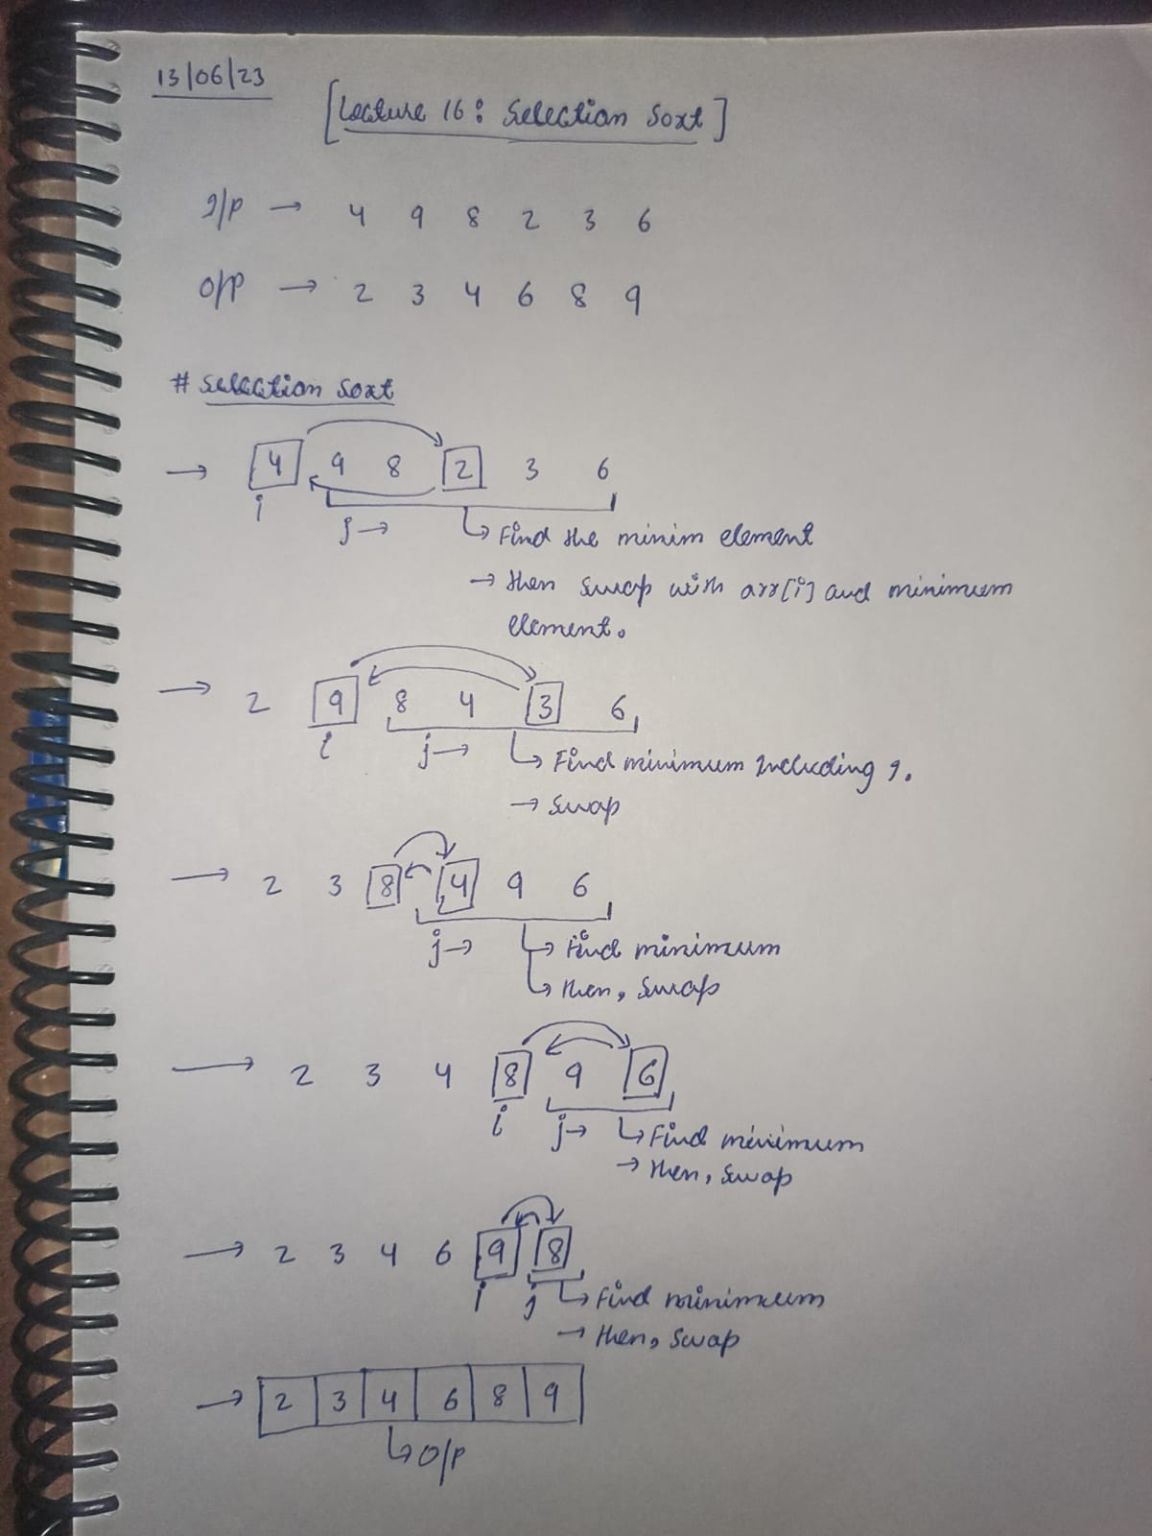 13/06/23
[Lecture 16: Selection Sort]
I/P → 4 9 8 2 3 6
O/P → 2 3 4 6 8 9
# Selection Sort
→ 4 9 8 2 3 6
i j→ ↳ Find the minim element
→ then swap with arr[i] and minimum
element.
→ 2 9 8 4 3 6
i j→ ↳ Find minimum including 9.
→ swap
→ 2 3 8 4 9 6
j→ ↳ Find minimum
↳ then, swap
→ 2 3 4 8 9 6
i j→ ↳ Find minimum
→ then, swap
→ 2 3 4 6 9 8
i j ↳ Find minimum
→ then, swap
→ 2 3 4 6 8 9
↳ O/P